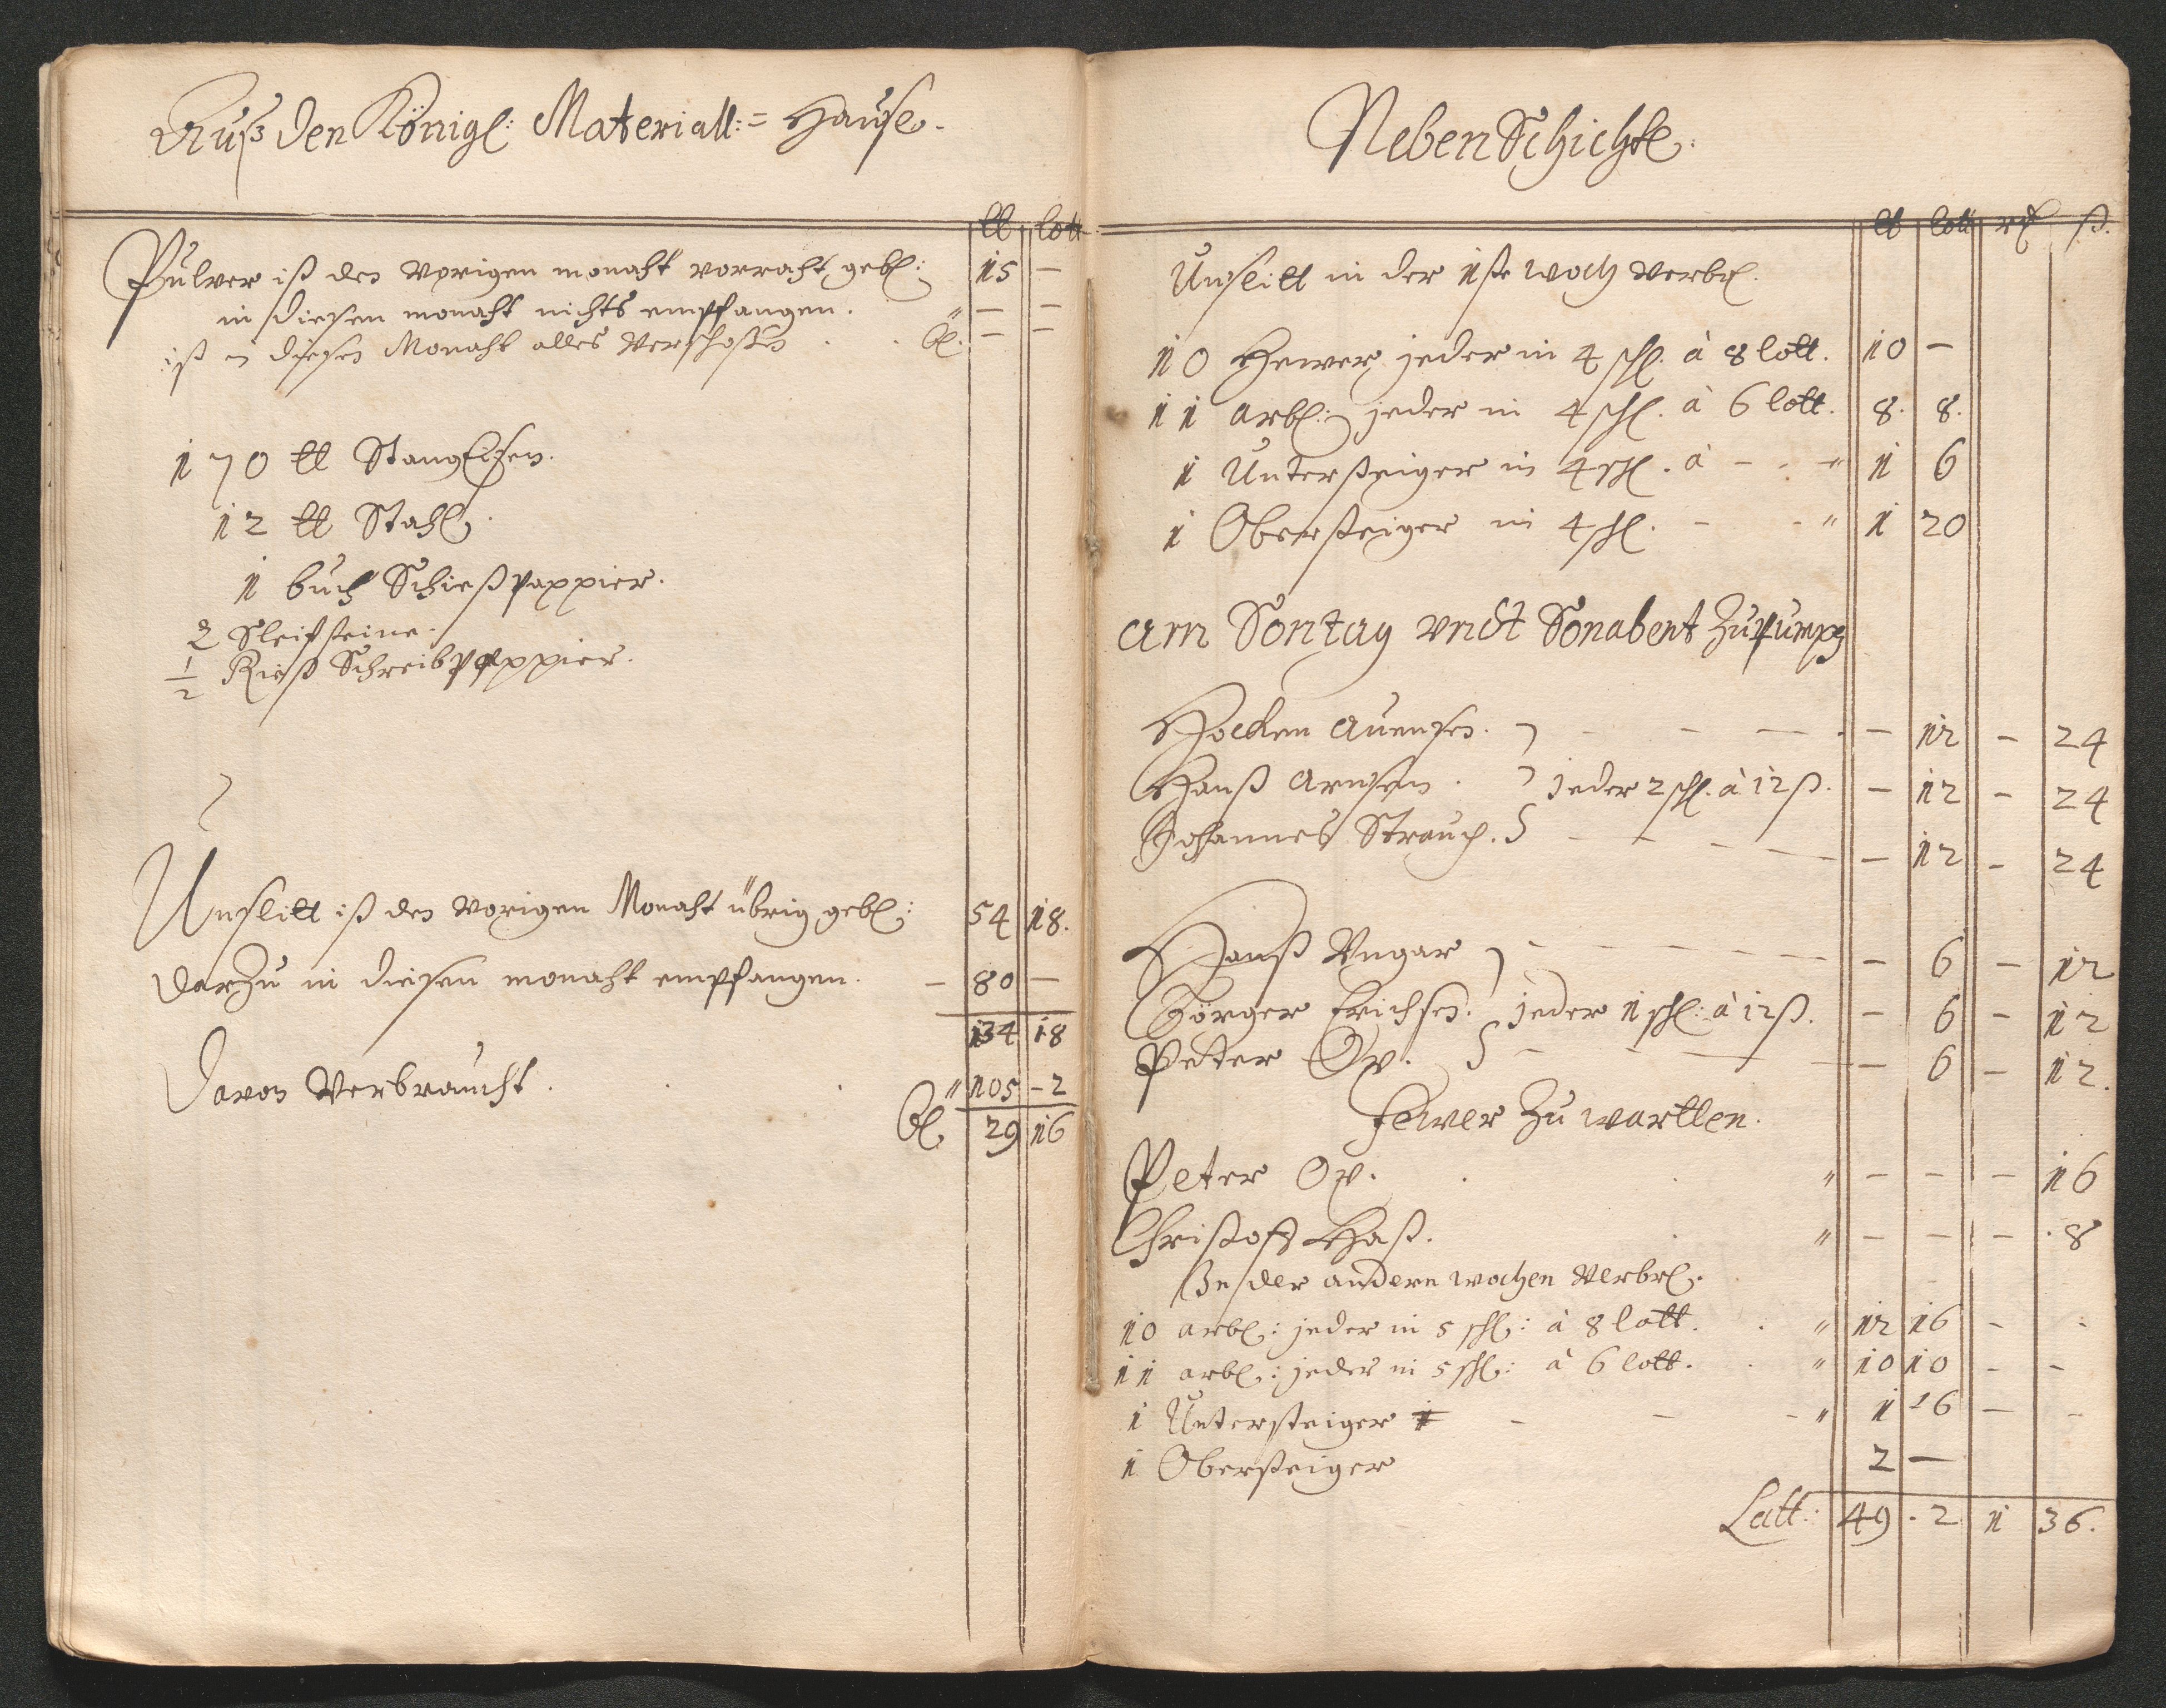 Auß den Königl: Materiall:= Hause.
℔ lott
Pulver iß den vorigen monaht vorraht gebl: 15 —
in diesen monaht nichts empfangen. " — —
iß in diesen Monaht alles verschoßen . . Bl. — —
170 ℔ Stang Eisen.
12 ℔ Stahl.
1 buch Schießpappier.
2 Sleifsteine.
1/2 Rieß Schreibpappier.
Unslitt iß den vorigen Monaht übrig gebl: 54 18.
darzu in diesen monaht empfangen. — 80 —
134 18
davon verbraucht. . . " 105 - 2
Bl. 29 16
NebenSchichte.
℔ lott rd ß.
Unslitt in der 1ste woch verbr.
10 Hewer jeder in 4 schl. à 8 lott. 10 —
11 arbl: jeder in 4 schl. à 6 lott. 8. 8.
1 Untersteiger in 4 schl. à - . - " 1 6
1 Obersteiger in 4 schl. - - " 1 20
am Sontag vndt Sonabent Zu pumpen
Hocken Auensen. } — — — — 12 — 24
Hanß Arnsen. } jeder 2 schl. à 12 ß. — 12 — 24
Johannes Strauch. } — — — — 12 — 24
Hanß Ungar } — — — — 6 — 12
Jörger Erichsen. } jeder 1 schl: à 12 ß. — 6 — 12
Peter Ox. } — — — — 6 — 12.
Fewer Zu wartten.
Peter Ox. . . " — — — 16
Christoff Haß. . " — — — . 8
In der andern wochen verbr.
10 arbl: jeder in 5 schl: à 8 lott. . " 12 16 - -
11 arbl: jeder in 5 schl: à 6 lott. . " 10 10 - -
1 Untersteiger - - - " 1 16 — -
1 Obersteiger 2 —
Latt: 49 . 2 1 36.